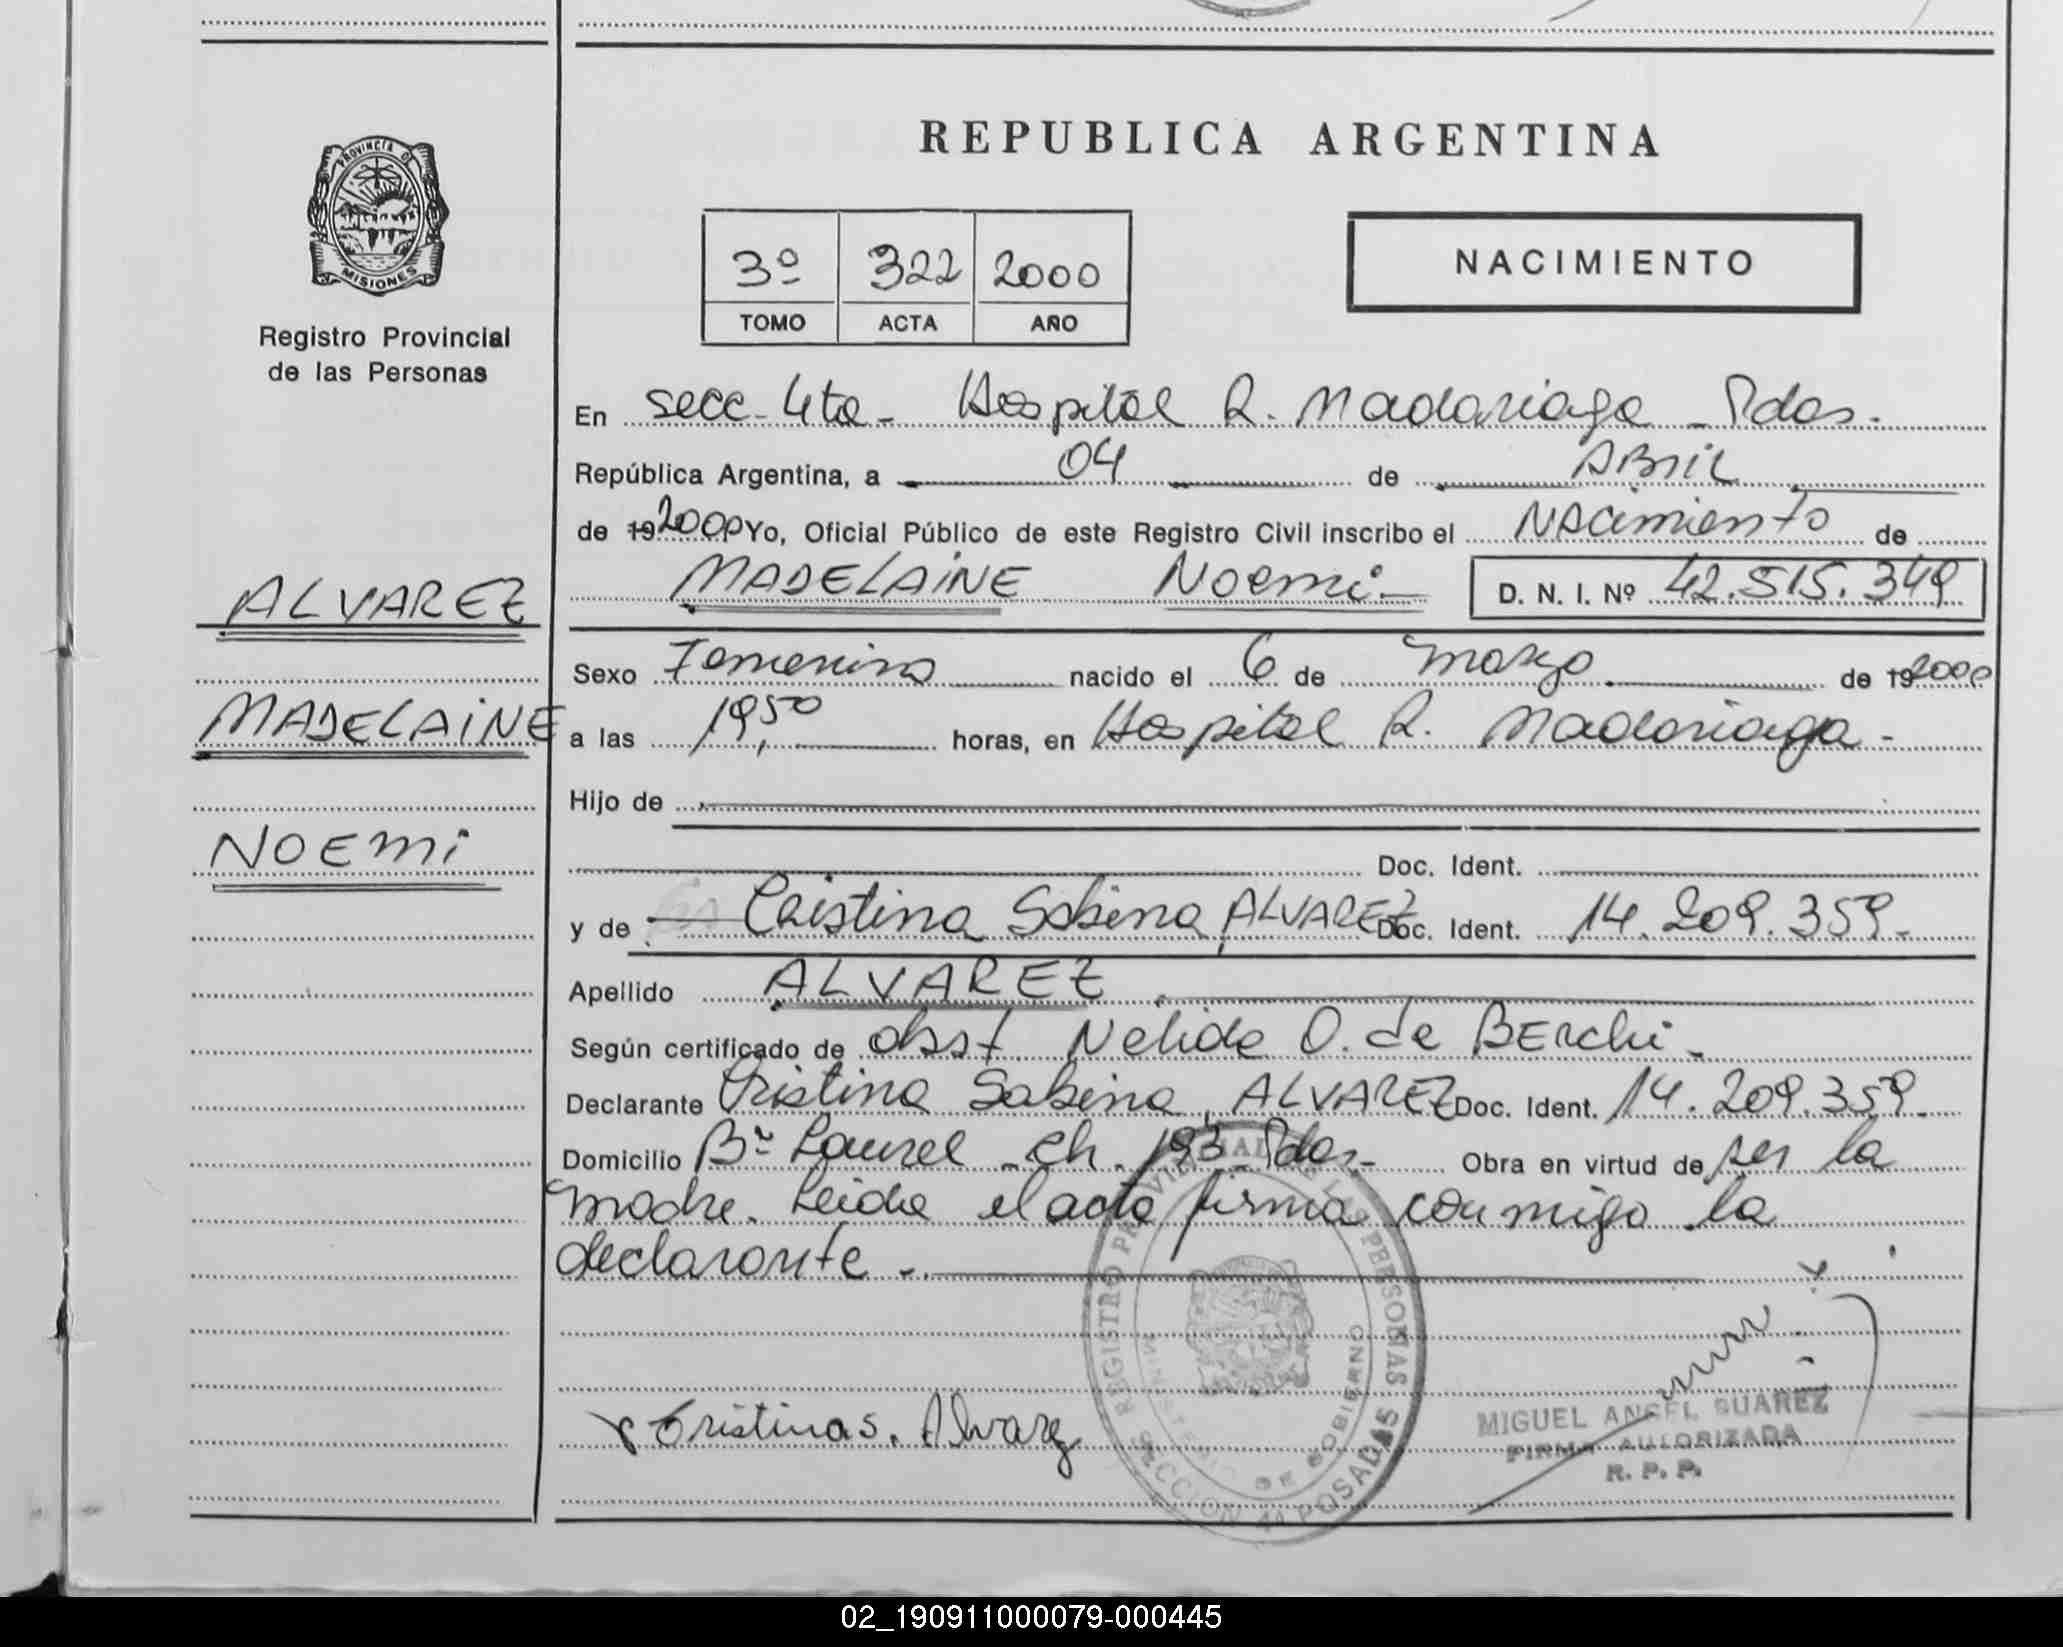 REPUBLICA ARGENTINA
PROVINCIA DE
MISIONES
Registro Provincial
de las Personas
3º 322 2000
TOMO ACTA AÑO
NACIMIENTO
En secc. 4ta - Hospital R. Madariaga - Pdas.
República Argentina, a 04 de Abril
de 19 2000 Yo, Oficial Público de este Registro Civil inscribo el Nacimiento de
ALVAREZ
MADELAINE Noemi - D. N. I. Nº 42.515.349
Sexo Femenino nacido el 6 de marzo de 19 2000
MADELAINE
a las 19,50 horas, en Hospital R. Madariaga -
Hijo de
NOEMI
Doc. Ident.
y de Cristina Sabina ALVAREZ Doc. Ident. 14.209.359.-
Apellido ALVAREZ.
Según certificado de obst. Nelida O. de BERchi -
Declarante Cristina Sabina, ALVAREZ Doc. Ident. 14.209.359.-
Domicilio Bº Laurel - ch. 193 - Pdas - Obra en virtud de ser la
madre. Leida el acta firma conmigo la
declarante -.
REGISTRO PROVINCIAL DE LAS PERSONAS
MINISTERIO DE GOBIERNO
SECCION 4ª POSADAS
x Cristina S. Alvarez
MIGUEL ANGEL SUAREZ
FIRMA AUTORIZADA
R. P. P.
02_190911000079-000445